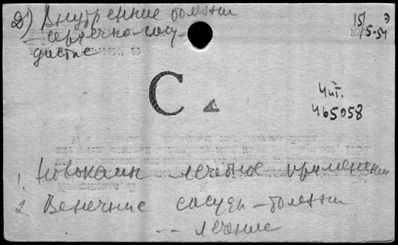 д) Внутренние болезни
сердечно-сосу-
дистые
15/5-54
С
Чит.
465058
1. Новокаин лечебное применение
2 Венечные сосуды - болезни
-- лечение